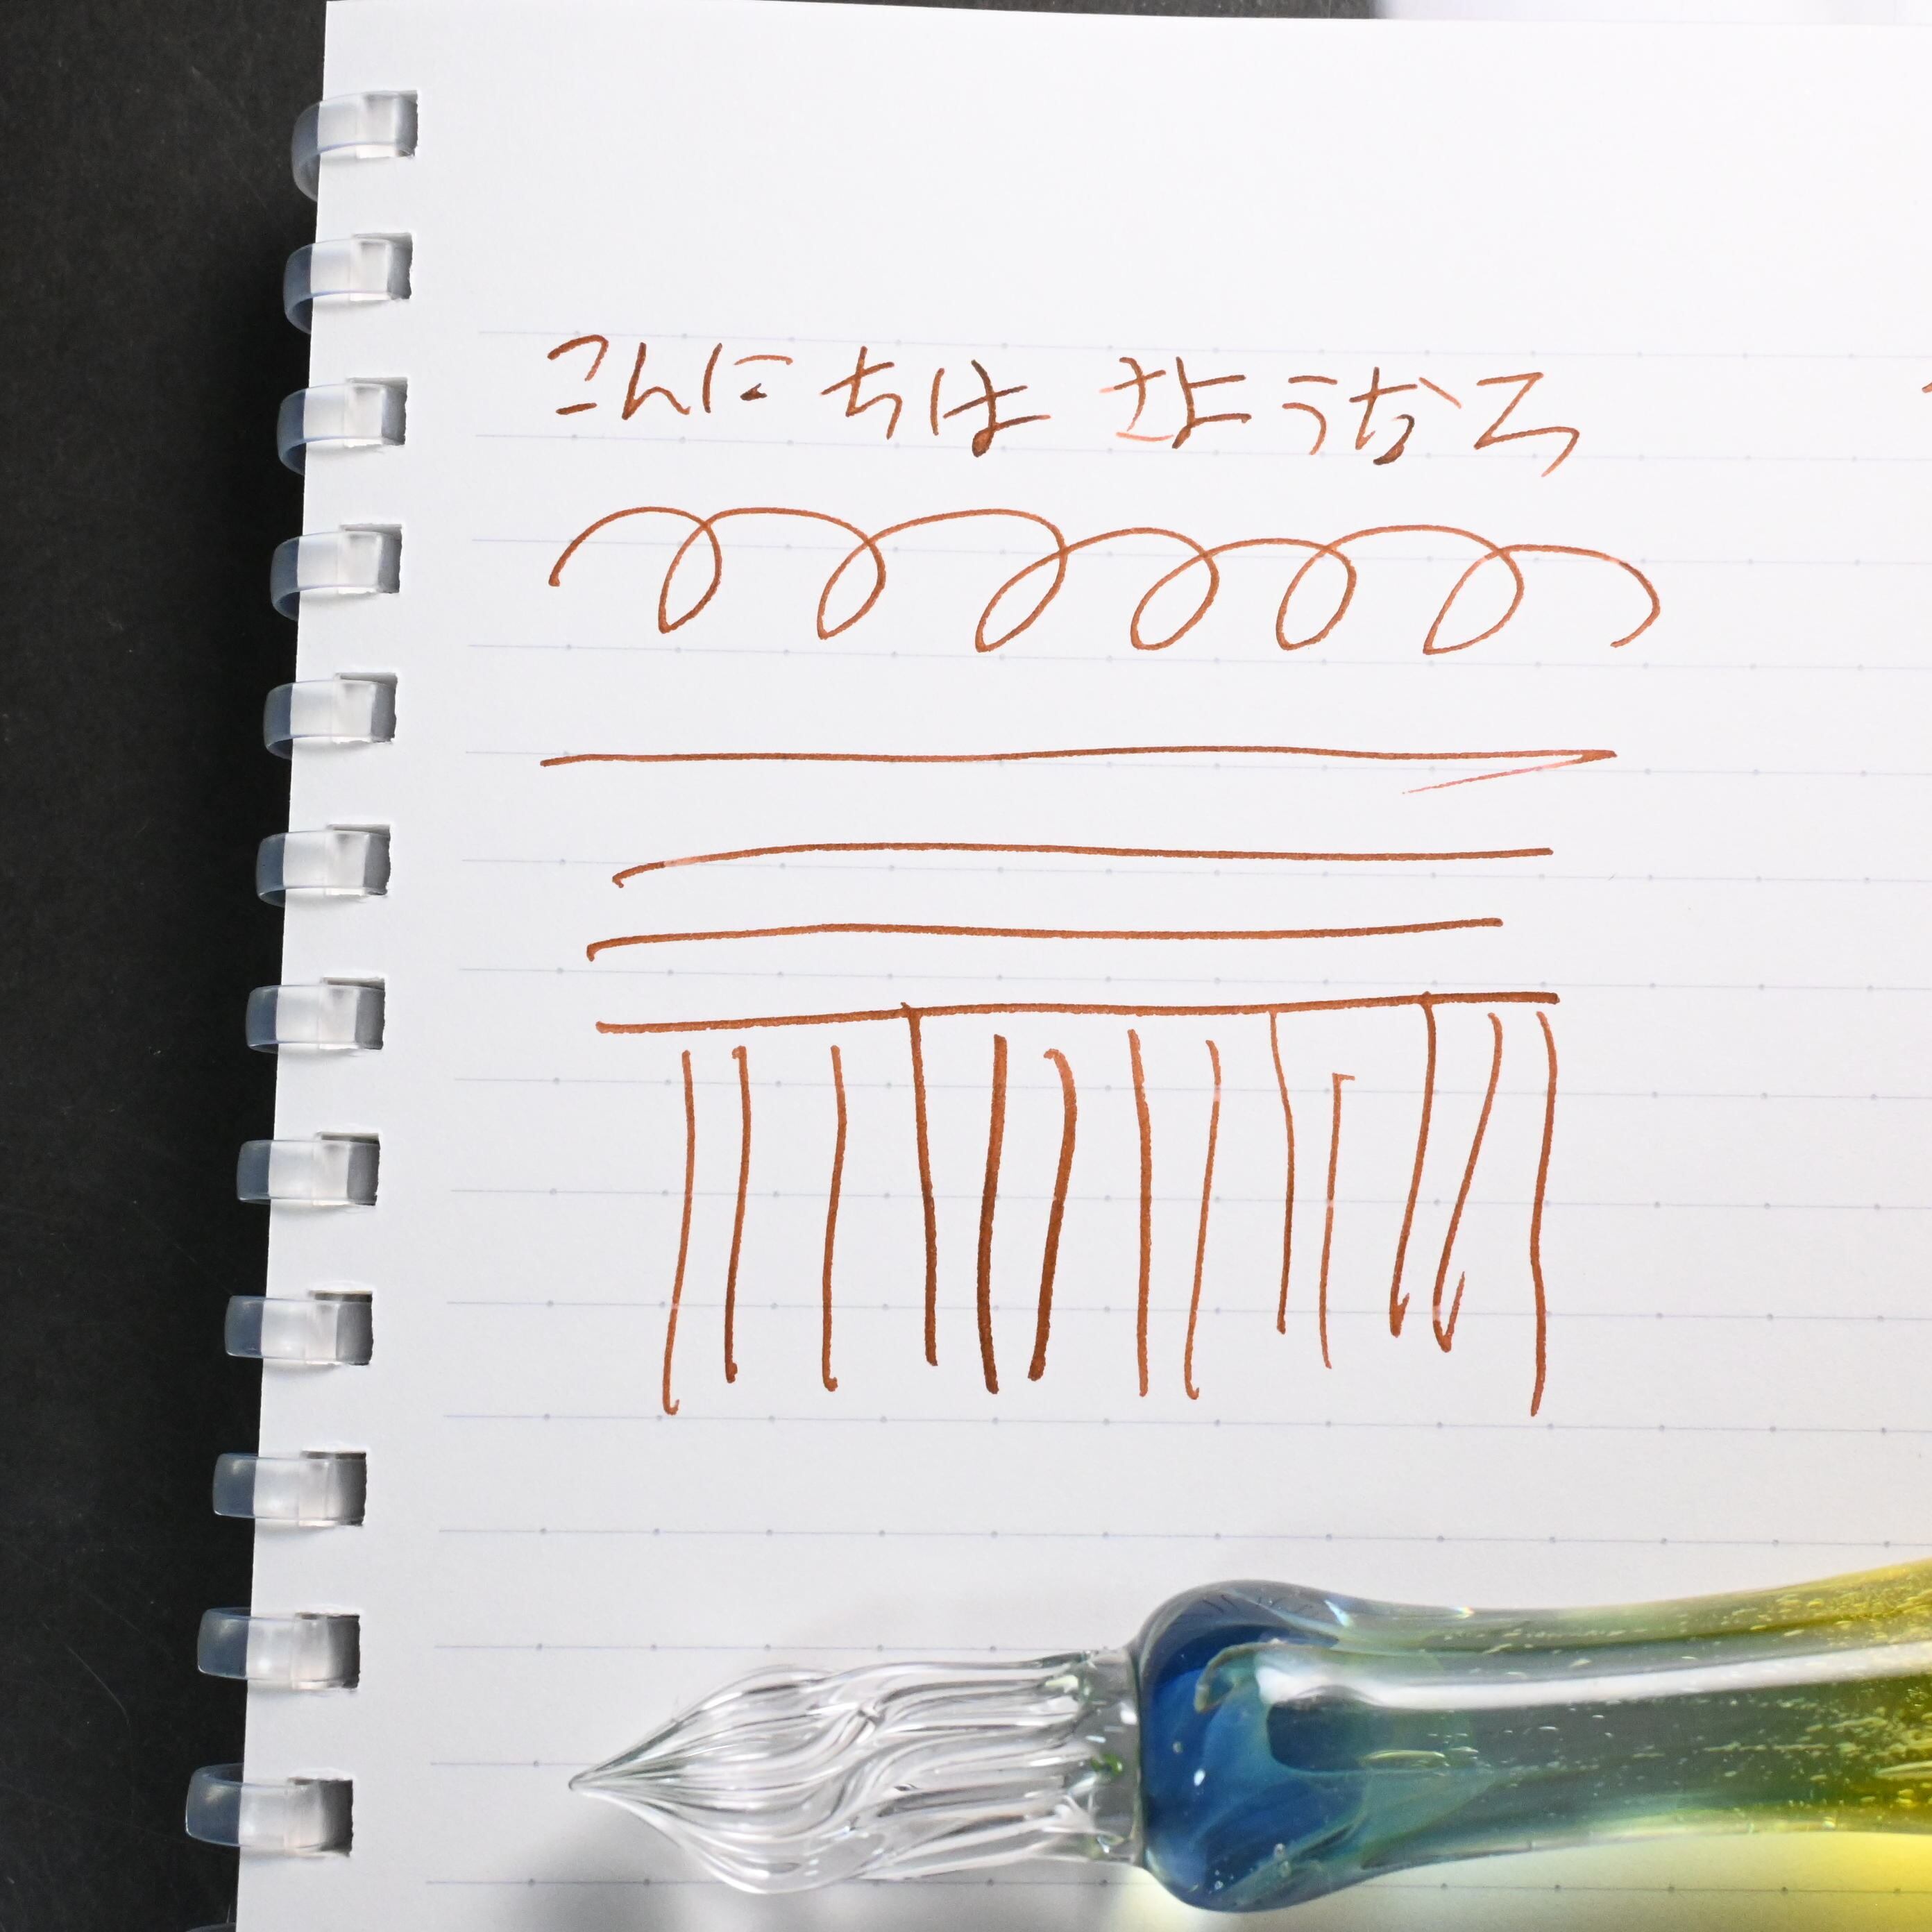 こんにちは さようなら